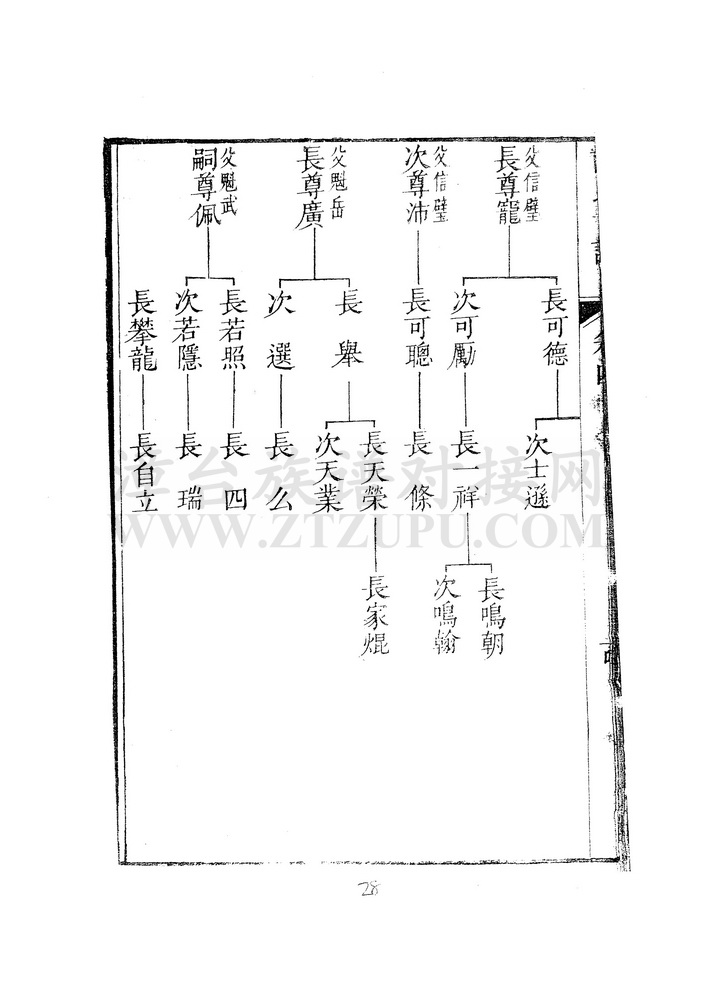 父信璧
長尊寵
父信璧
次尊沛
父魁岳
長尊廣
父魁武
嗣尊佩
長可德
次可勵
長可聰
長舉
次選
長若照
次若隱
長攀龍
次士遜
長一祥
長條
長天榮
次天業
長么
長四
長瑞
長自立
長鳴朝
次鳴翰
長家焜
漳台族谱对接网
WWW.ZTZUPU.COM
28